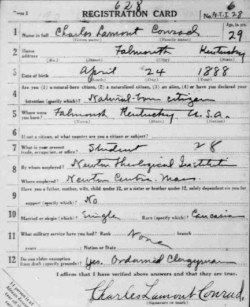 628
6
Form 1
REGISTRATION CARD
No. 28
1 Name in full Charles Lamont Conrad
Age, in yrs. 29
(Given name) (Family name)
2 Home address Falmouth Kentucky
3 Date of birth April 24 1888
(Month) (Day) (Year)
4 Are you (1) a natural-born citizen, (2) a naturalized citizen, (3) an alien, (4) or have you declared your
intention (specify which)? Natural-born citizen
5 Where were you born? Falmouth Kentucky U.S.A.
6 If not a citizen, of what country are you a citizen or subject?
7 What is your present trade, occupation, or office? Student 28
8 By whom employed? Newton Theological Institute
Where employed? Newton Centre, Mass.
9 Have you a father, mother, wife, child under 12, or a sister or brother under 12, solely dependent on you for
support (specify which)? No
10 Married or single (which)? Single Race (specify which)? Caucasian
11 What military service have you had? Rank
branch
None
years Nation or State
12 Do you claim exemption from draft (specify grounds)? Yes. Ordained Clergyman
I affirm that I have verified above answers and that they are true.
Charles Lamont Conrad